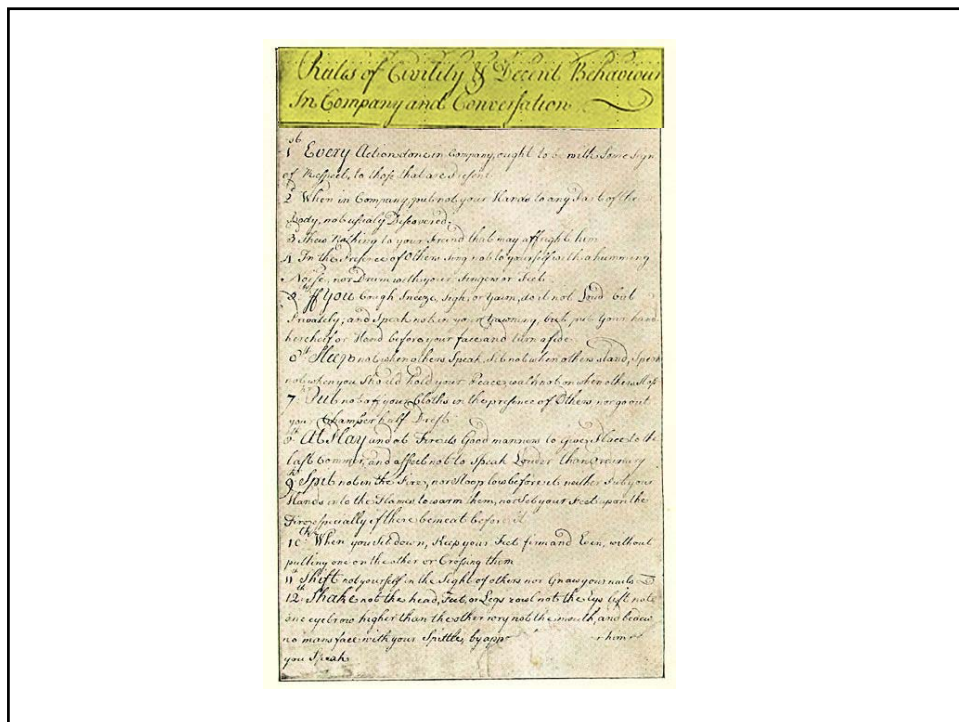 Rules of Civility & Decent Behaviour
In Company and Conversation
1st Every Action done in Company, ought to be with Some Sign
of Respect, to those that are Present.
2d When in Company, put not your Hands to any Part of the
Body, not usualy Discovered.
3 Shew Nothing to your Freind that may affright him
4 In the Presence of Others sing not to yourself with a humming
Noise, nor Drum with your Fingers or Feet
5th If You Cough, Sneeze, Sigh, or Yawn, do it not Loud but
Privately; and Speak not in your Yawning, but put Your hand
kercheif or Hand before your face and turn aside
6th Sleep not when others Speak, Sit not when others stand, Speak
not when you Should hold your Peace, walk not on when others Stop
7th Put not off your Cloths in the presence of Others, nor go out
your Chamber half Drest
8th At Play and at Fire its Good manners to Give Place to the
last Commer, and affect not to Speak Louder than Ordinary
9th Spit not in the Fire, nor Stoop low before it neither Put your
Hands into the Flames to warm them, nor Set your Feet upon the
Fire especially if there be meat before it
10th When you Sit down, Keep your Feet firm and Even, without
putting one on the other or Crossing them
11th Shift not yourself in the Sight of others nor Gnaw your nails
12th Shake not the head, Feet, or Legs rowl not the Eys lift not
one eyebrow higher than the other wry not the mouth, and bedew
no mans face with your Spittle, by app
you Speak